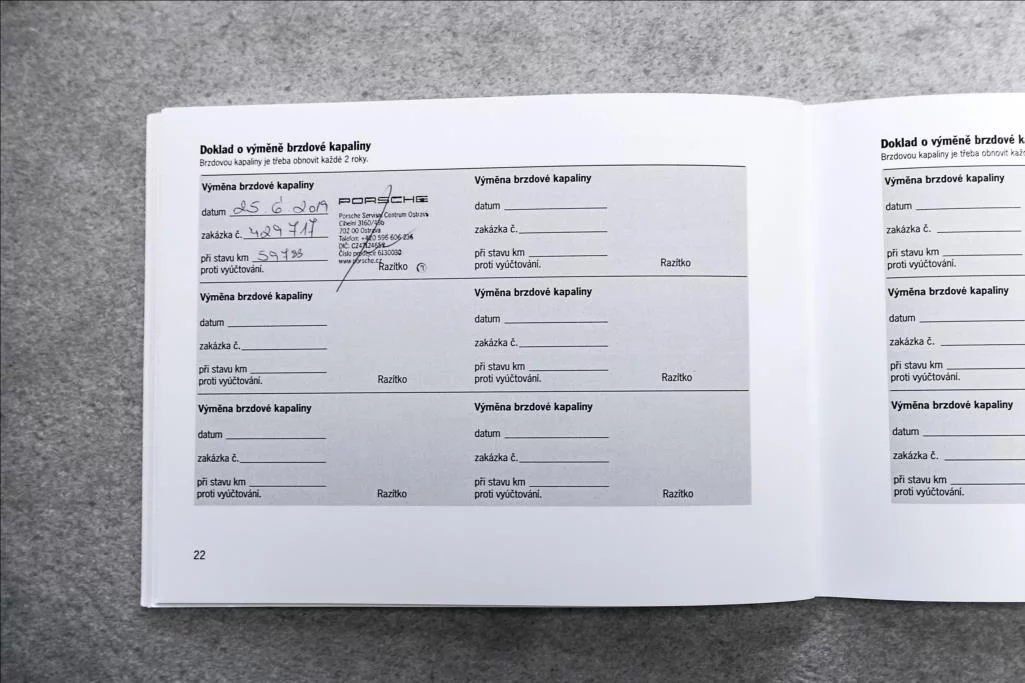 Doklad o výměně brzdové kapaliny
Brzdovou kapaliny je třeba obnovit každé 2 roky.
Výměna brzdové kapaliny
datum 25. 6. 2019
zakázka č. 429717
při stavu km
proti vyúčtování.
PORSCHE
Porsche Servisní Centrum Ostrava
Cihelní
702 00 Ostrava
Telefon: +420 596 606 236
DIČ:
Číslo prodejce 6130030
www.porsche.cz
Razítko
Výměna brzdové kapaliny
datum
zakázka č.
při stavu km
proti vyúčtování.
Razítko
Výměna brzdové kapaliny
datum
zakázka č.
při stavu km
proti vyúčtování.
Razítko
Výměna brzdové kapaliny
datum
zakázka č.
při stavu km
proti vyúčtování.
Razítko
Výměna brzdové kapaliny
datum
zakázka č.
při stavu km
proti vyúčtování.
Razítko
Výměna brzdové kapaliny
datum
zakázka č.
při stavu km
proti vyúčtování.
Razítko
22
Doklad o výměně brzdové
Brzdovou kapaliny je třeba obnovit
Výměna brzdové kapaliny
datum
zakázka č.
při stavu km
proti vyúčtování.
Výměna brzdové kapaliny
datum
zakázka č.
při stavu km
proti vyúčtování.
Výměna brzdové kapaliny
datum
zakázka č.
při stavu km
proti vyúčtování.